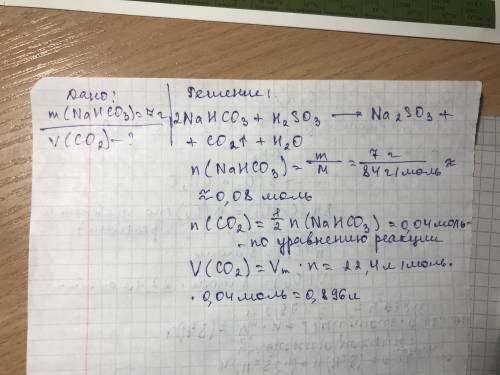 Дано:
m(NaHCO3)=7г
V(CO2)-?
Решение:
2NaHCO3 + H2SO3 → Na2SO3 +
+ CO2↑ + H2O
n(NaHCO3) = m/M = 7г/84г/моль ≈
≈ 0,08 моль
n(CO2) = 1/2 n(NaHCO3) = 0,04 моль-
- по уравнению реакции
V(CO2) = Vm · n = 22,4 л/моль ·
· 0,04 моль = 0,896 л